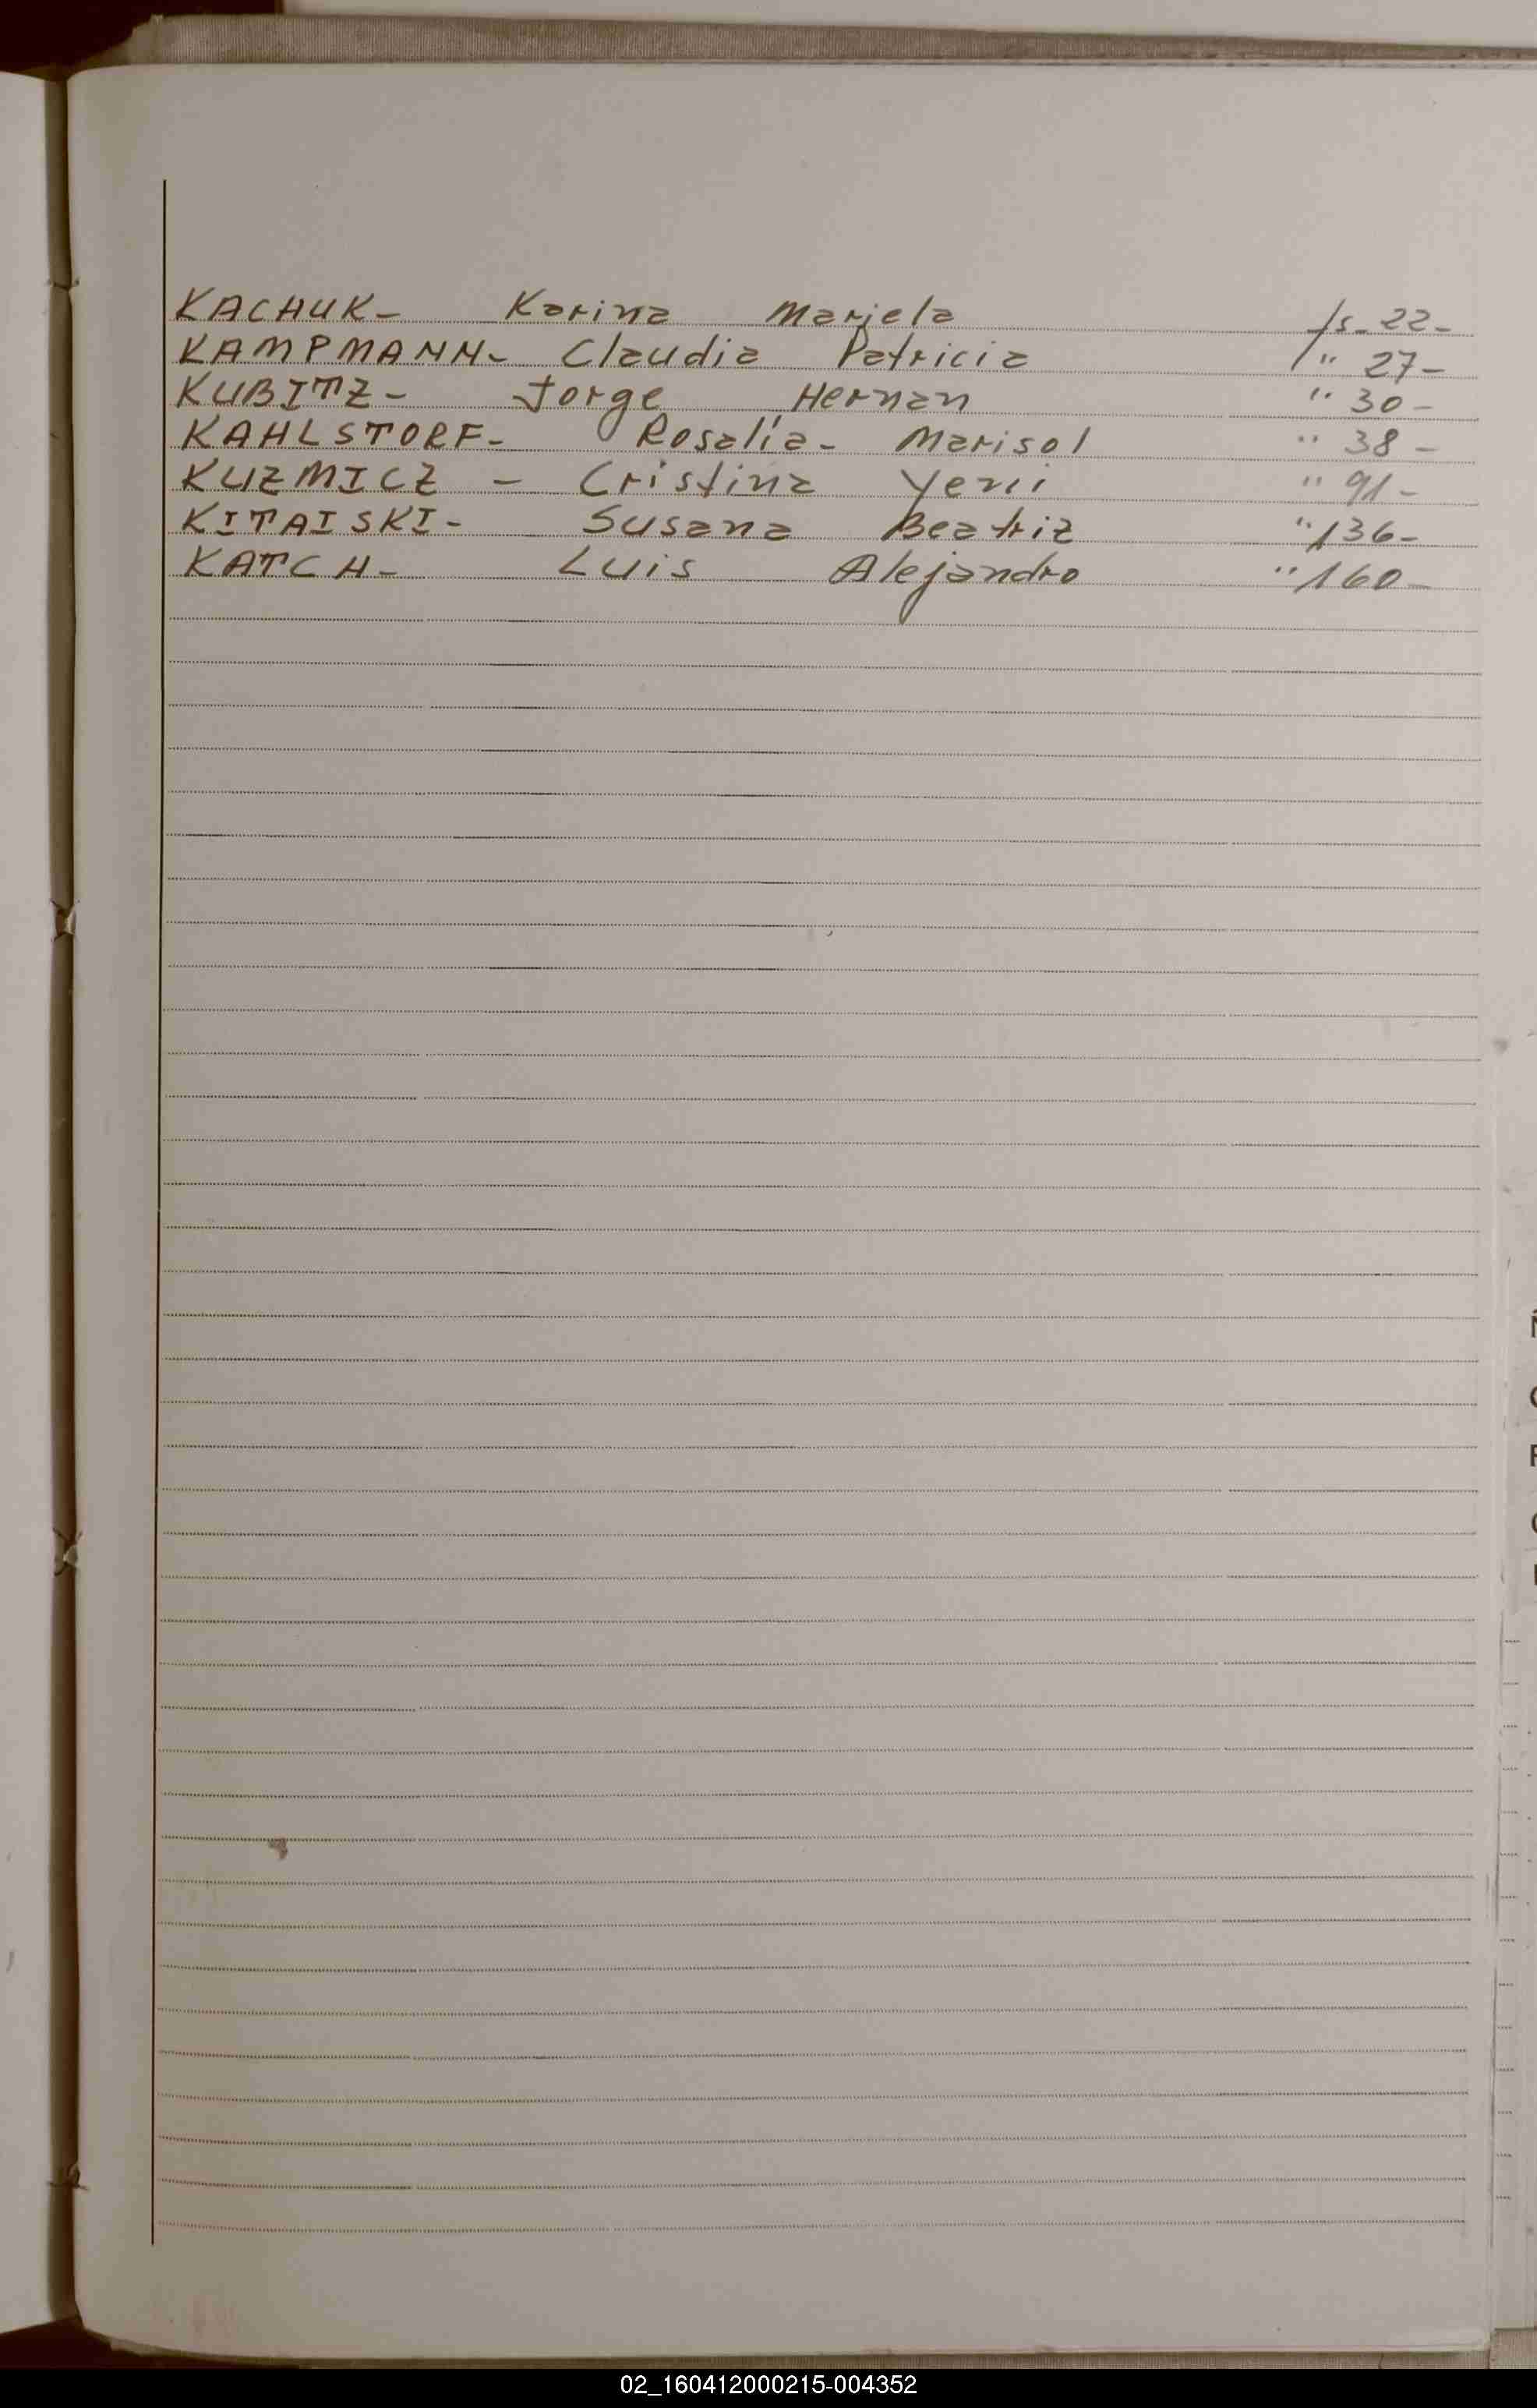 KACHUK- Karina Mariela fs- 22-
KAMPMANN- Claudia Patricia " 27-
KUBITZ- Jorge Hernan " 30-
KAHLSTORF- Rosalía- Marisol " 38-
KUZMICZ - Cristina Yenii " 91-
KITAISKI- Susana Beatriz " 136-
KATCH- Luis Alejandro " 160-
02_160412000215-004352